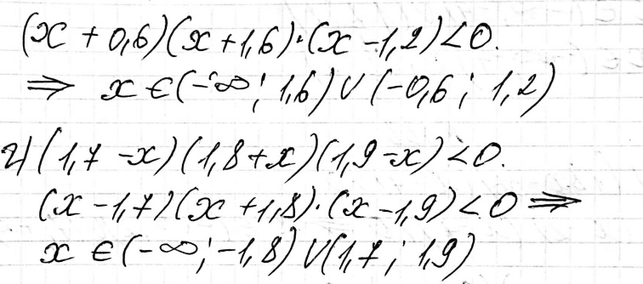 (x + 0,6)(x + 1,6)·(x - 1,2) < 0.
⇒ x ∈ (-∞; 1,6) ∪ (-0,6; 1,2)
г) (1,7 - x)(1,8 + x)(1,9 - x) < 0.
(x - 1,7)(x + 1,8)·(x - 1,9) < 0 ⇒
x ∈ (-∞; -1,8) ∪ (1,7; 1,9)